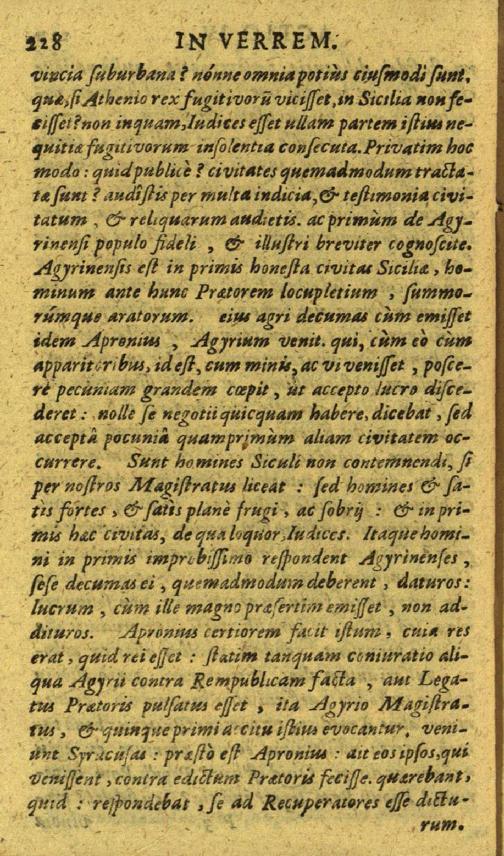 228 IN VERREM.
vincia suburbana? nónne omnia potiùs eiusmodi sunt,
quæ, si Athenio rex fugitivorũ vicisset, in Sicilia non fe-
cisset? non inquam, Iudices esset ullam partem istius ne-
quitiæ fugitivorum insolentia consecuta. Privatim hoc
modo: quid publicè? civitates quemadmodum tracta-
tæ sunt? audistis per multa indicia, & testimonia civi-
tatum, & reliquarum audietis. ac primùm de Agy-
rinensi populo fideli, & illustri breviter cognoscite.
Agyrinensis est in primis honesta civitas Siciliæ, ho-
minum ante hunc Prætorem locupletium, summo-
rúmque aratorum. eius agri decumas cùm emisset
idem Apronius, Agyrium venit. qui, cùm eò cùm
apparitoribus, id est, cum minis, ac vi venisset, posce-
re pecuniam grandem cœpit, ùt accepto lucro disce-
deret: nolle se negotii quicquam habere, dicebat, sed
acceptâ pocuniâ quamprimùm aliam civitatem oc-
currere. Sunt homines Siculi non contemnendi, si
per nostros Magistratus liceat: sed homines & sa-
tis fortes, & satis planè frugi, ac sobrij: & in pri-
mis hæc civitas, de qua loquor, Iudices. Itaque homi-
ni in primis improbissimo respondent Agyrinenses,
sese decumas ei, quemadmodum deberent, daturos:
lucrum, cùm ille magno præsertim emisset, non ad-
dituros. Apronius certiorem facit istum, cuia res
erat, quid rei esset: statim tanquam coniuratio ali-
qua Agyrii contra Rempublicam facta, aut Lega-
tus Prætoris pulsatus esset, ita Agyrio Magistra-
tus, & quinque primi accitu istius evocantur. veni-
unt Syracusas: præstò est Apronius: ait eos ipsos, qui
venissent, contra edictum Prætoris fecisse. quærebant,
quid: respondebat, se ad Recuperatores esse dictu-
rum.